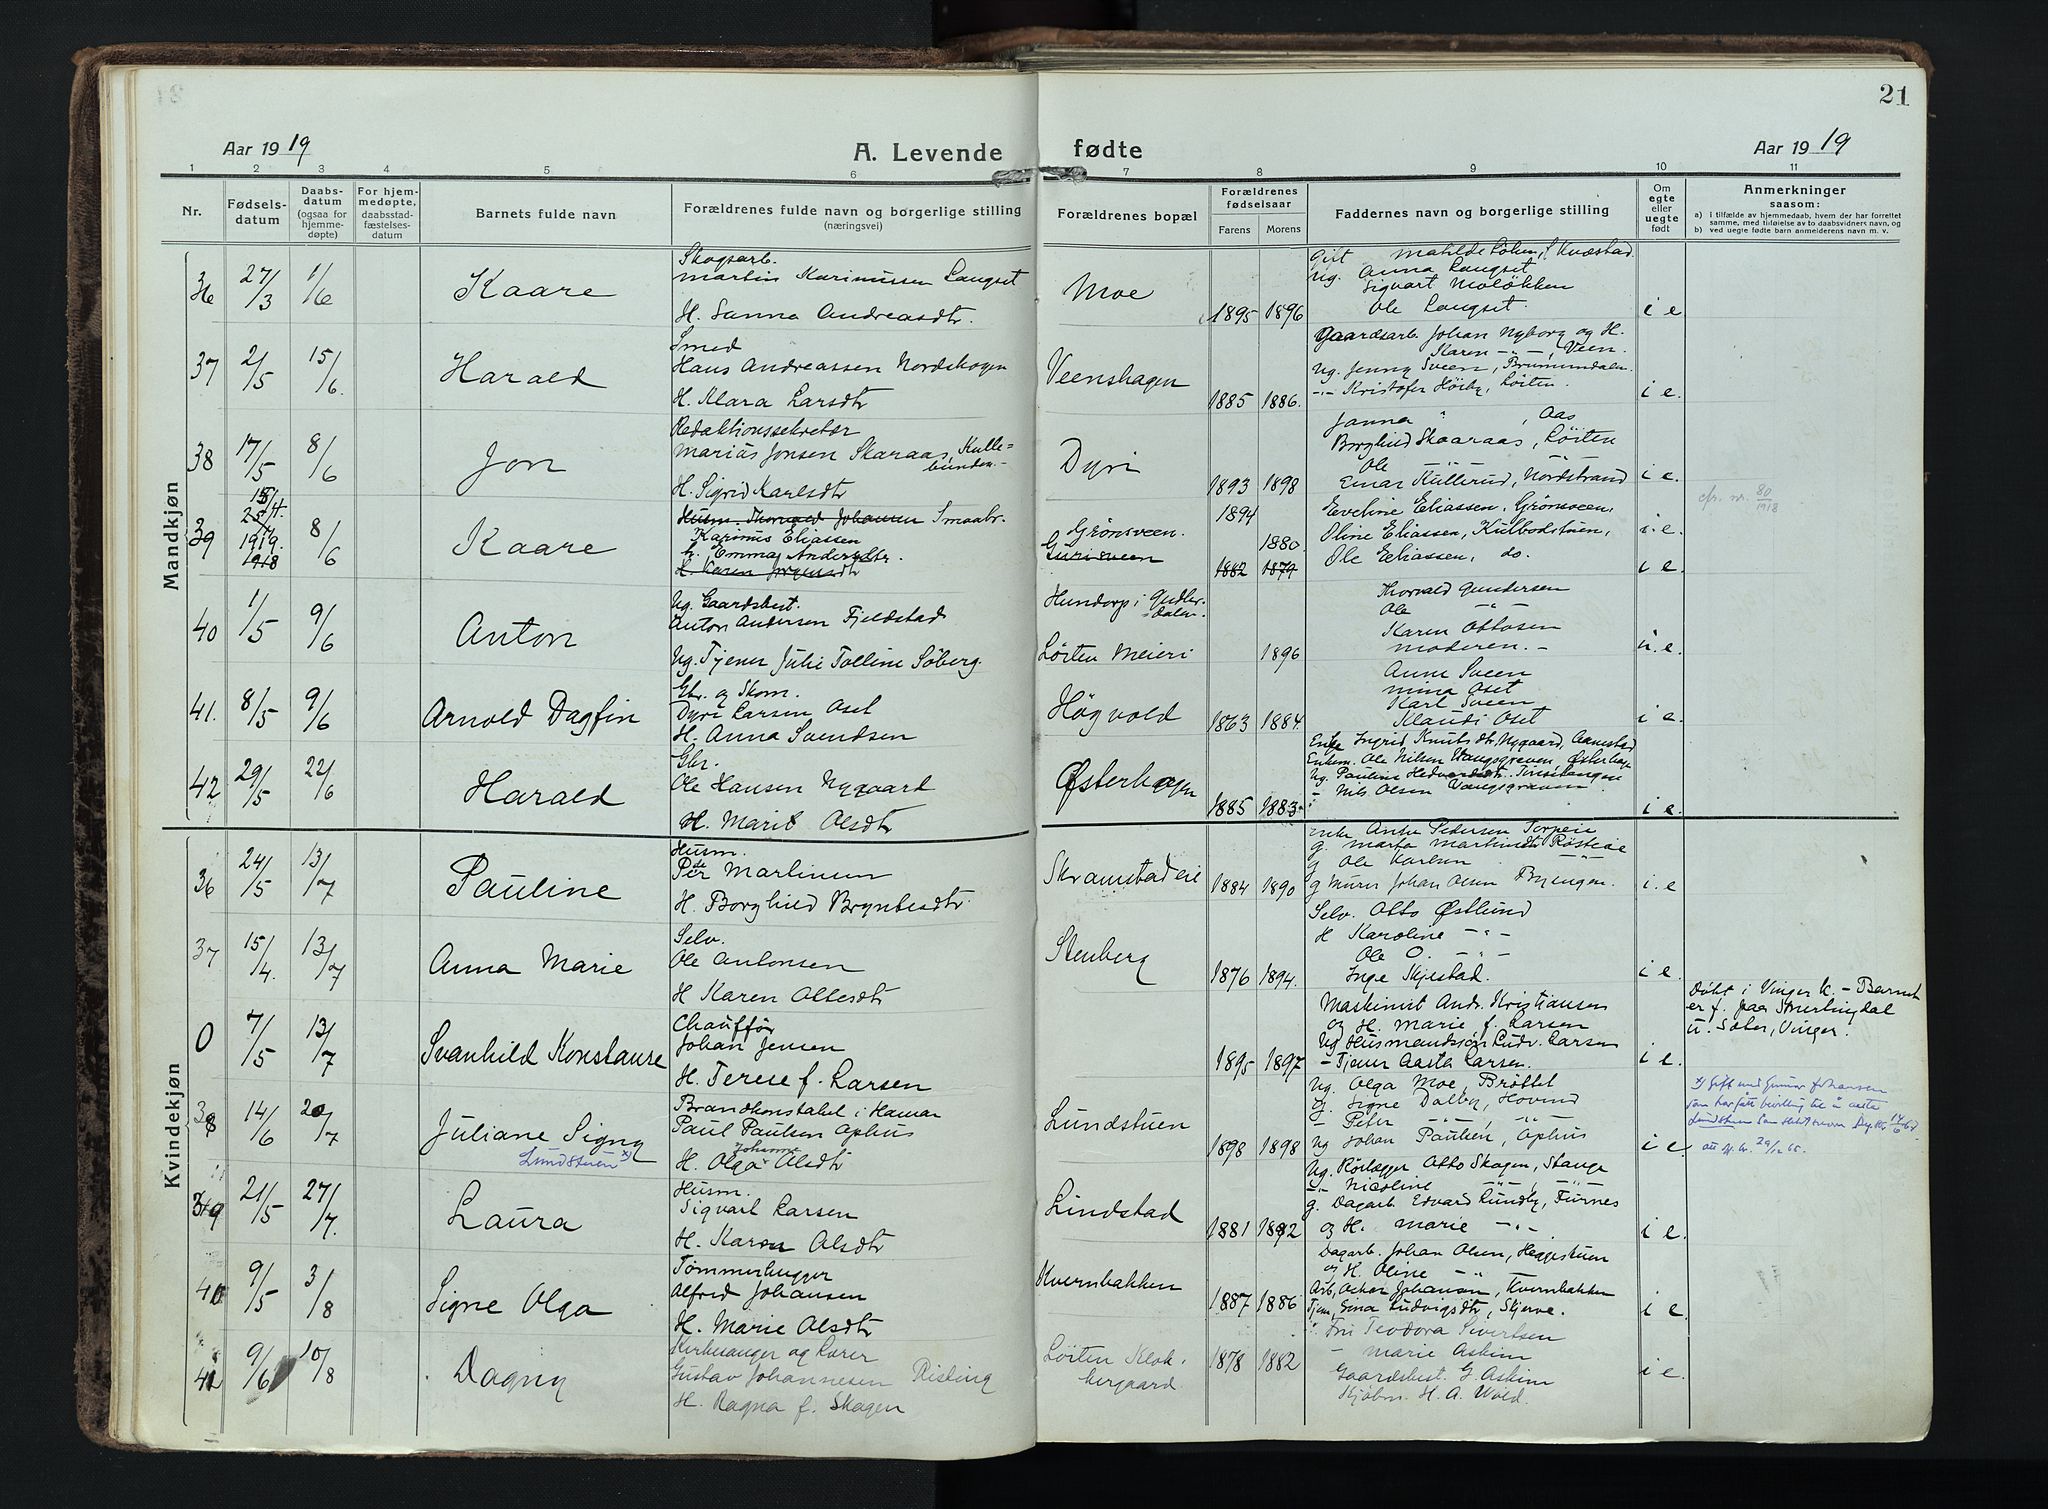 21
Aar 1919
A. Levende fødte
Aar 1919
1 2 3 4 5 6 7 8 9 10 11
Nr.
Fødselsdatum
Daabsdatum (ogsaa for hjemmedøpte)
For hjemmedøpte, daabsstadfæstelsesdatum
Barnets fulde navn
Forældrenes fulde navn og borgerlige stilling (næringsvei)
Forældrenes bopæl
Forældrenes fødselsaar
Farens Morens
Faddernes navn og borgerlige stilling
Om egte eller uegte født
Anmerkninger saasom:
a) i tilfælde av hjemmedaab, hvem der har forrettet samme, med tilføielse av to daabsvidners navn, og
b) ved uegte fødte barn anmelderens navn m. v.
Mandkjøn
36 27/3 1/6 Kaare
Skogsarb.
Martin Karinussen Langset
H. Sanna Andreasdtr.
Moe 1895 1896
Gift Mathilde Løken, Kvæstad
Ug. Anna Langset
Sigvart Moløkken
Ole Langset
i e
37 2/5 15/6 Harald
Smed
Hans Andreassen Nordskogen
H. Klara Larsdtr
Veenshagen 1885 1886.
Gaardsarb. Johan Nyborg og H.
Karen -"-, Veen.
Ug. Jenny Sveen, Brumunddalen.
-"- Kristofer Høiby, Løiten.
i e.
38 17/5 8/6 Jon
Redaktionssekretær
Marius Jonsen Skaraas, Kullebunden.-
H. Sigrid Karlsdtr
Dyri 1893 1898
Janna " , Aas
Borghild Skaaraas, Løiten
Ole -"- -"-
Einar Kullerud, Nordstrand
i e.
39 15/4. 25/4 1919. 1918 8/6 Kaare
Husm. Thorvald Johansen Smaabr.
Karinus Eliassen
G. Emma Andersdtr.
H. Karen Jørgensdtr
Grønsveen.
Gurisveen
1894 1880.
1882 1879
Eveline Eliassen, Grønsveen,
Oline Eliassen, Kulbodstuen,
Ole Eliassen, do.
i. e.
i e.
cfr. nr. 80/1918
40 1/5 9/6 Anton
Ug. Gaardsbest.
Anton Andersen Fjeldstad
Ug. Tjener Julie Tolline Søberg.
Hundorp i Gudbr.dalen.
Løiten Meieri
1896
Thorvald Gundersen
Ole -"-
Karen Ottosen
moderen. -
u. e.
41. 8/5 9/6 Arnold Dagfin
Gbr. og Skom.
Dyre Larsen Oset
H. Anna Svendsen
Høgvold 1863 1884.
Anne Sveen
Mina Oset
Karl Sveen
Klaudi Oset
i e.
42 29/5 22/6 Harald
Gbr.
Ole Hansen Nygaard
H. Marit Olsdtr
Østerhagen 1885 1883.
Enke Ingrid Knutsdtr, Nygaard, Aamstad
Enkem. Ole Nilsen Vangsgreven, Østerhag
Ug. Pauline Hedvardsdtr.
- Nils Olsen Vangsgraven
i e.
Kvindekjøn
36 24/5 13/7 Pauline
Husm.
Peder Martinsen
H. Borghild Bryntesdtr.
Skramstadeie 1884 1890
Enke Anne Pedersen Torpeie
g. Marta Martinsdtr Røsteie
g Ole Karlsen -"-
g Murer Johan Olsen Byengen.
i. e
37 15/4. 13/7 Anna Marie
Selv.
Ole Antonsen
H Karen Ottesdtr
Stenberg 1876 1894.
Selv. Otto Østlund
H Karoline -"-
Ole O. -"-
Inge Skjestad.
i e.
0 7/5 13/7 Svanhild Konstanse
Chauffør
Johan Jensen
H. Terese f. Larsen
1895 1897
Maskinist Andr. Kristiansen
og H. Marie f. Larsen
Ug Husmandssøn Ludv. Larsen
- Tjener Aasta Larsen.
i e.
Døbt i Vinger K. - Barnet
er f. paa Smerlingdal
u. Sæter, Vinger.
38 14/6 20/7 Juliane Signy
Lundstuen x)
Brandkonstabel i Hamar
Paul Paulsen Ophus
H. Olga Johanne Olsdtr
Lundstuen 1898 1898
Ug. Olga Moe, Brøttet
g. Signe Dalby, Hovind
- Peter -"- , -"-
Ug Johan Paulsen, Ophus
i e.
x) Gift med Gunnar Johansen
som har fått bevilling til å anta
Lundstuen som slektsnavn
39 21/5 27/7. Laura
Husm.
Sigvart Larsen
H. Karen Olsdtr
Lindstad 1881 1892
Ug. Rørlægger Otto Skogen, Stange
-"- Nicoline -"- , -"-
g. Dagarb. Edvard Lundby, Furnes
og H. Marie -"-
i e.
40 9/5 3/8 Signe Olga
Tømmerhugger
Alfred Johansen
H. Marie Olsdtr
Kvernbakken 1887 1886
Dagarb. Johan Olsen, Heggestuen
og H. Oline -"-
Arb. Oskar Johansen, Kvernbakken
Tjen. Gina Ludvigsdtr, Skjerve.
i e.
41 9/6 10/8 Dagny
Kirkesanger og Lærer
Gustav Johannesen Risting
H. Ragna f. Skogen
Løiten Klokkergaard. 1878 1882
Fru Teodora Sivertsen
- Marie Askim
Gaardsbest. G. Askim
Kjøbm. H. A. Wold.
i e.